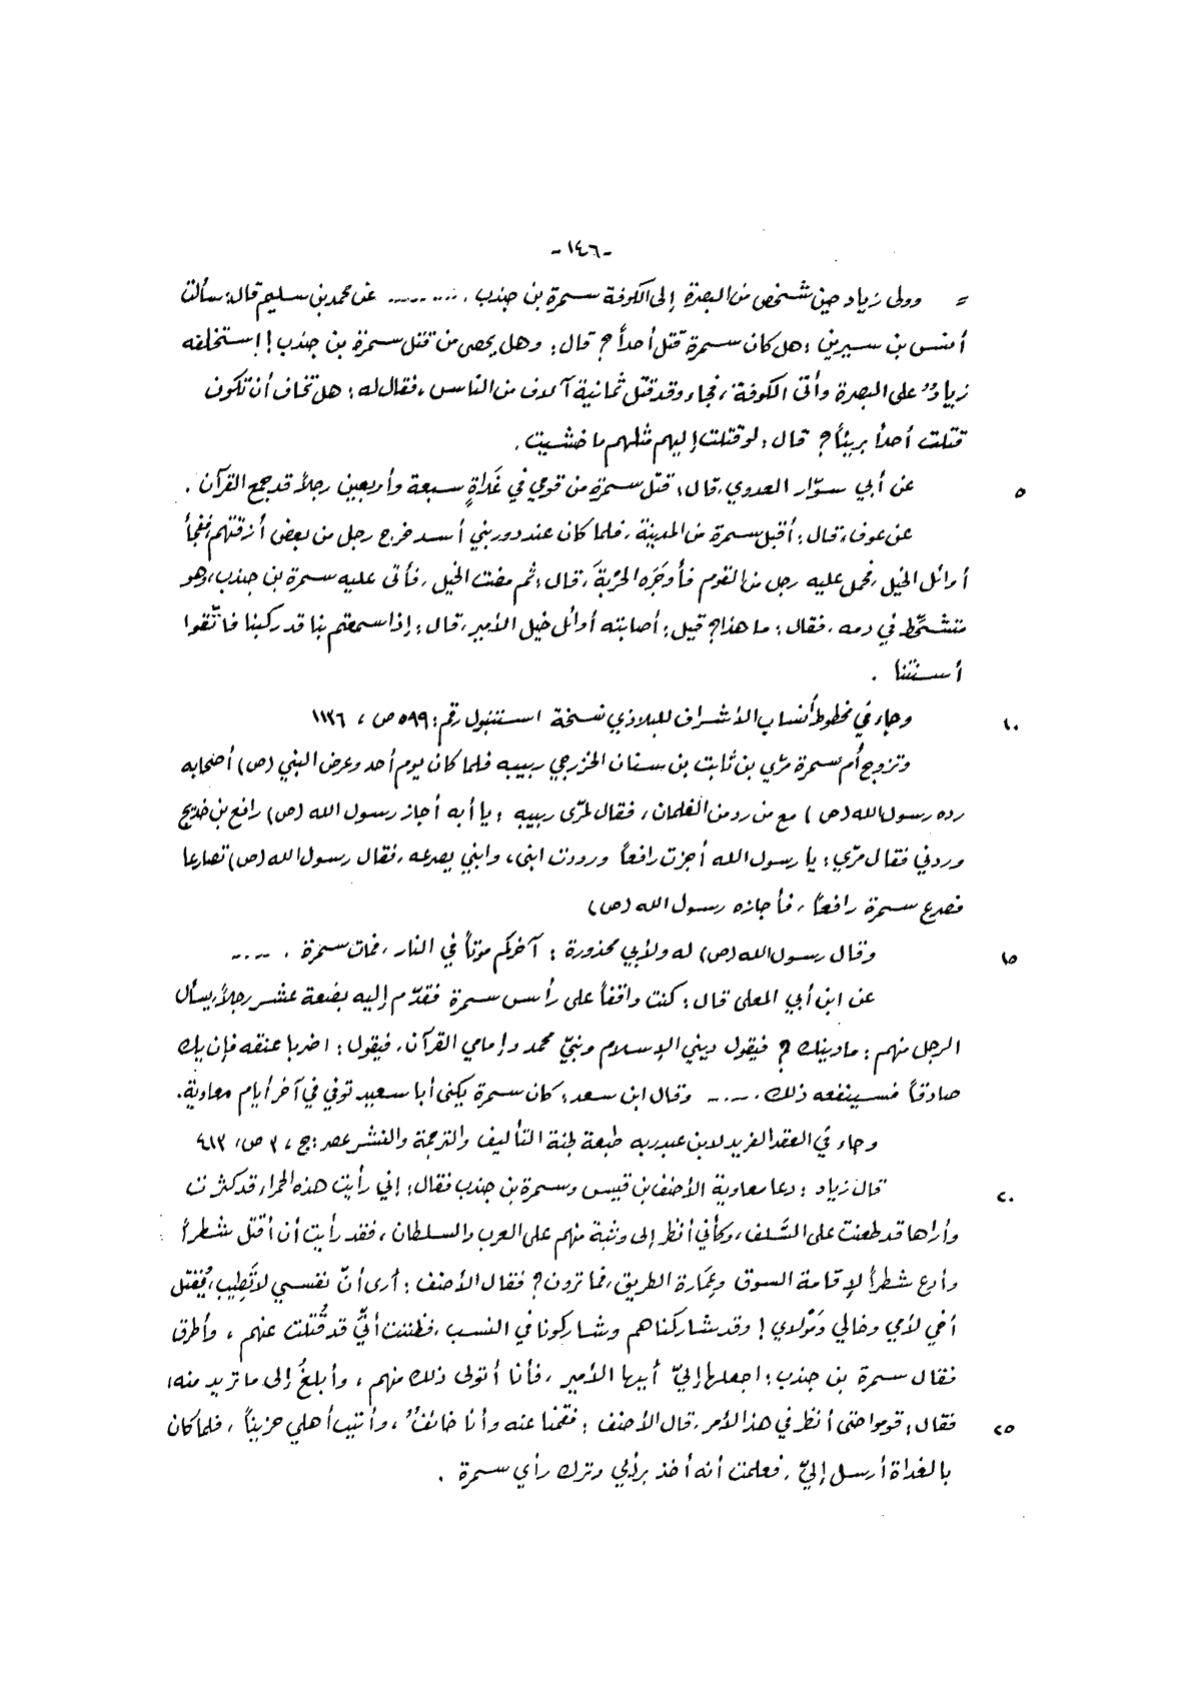 -١٤٦-
= وولى زياد حين شخص من البصرة إلى الكوفة سمرة بن جندب . ........ عن محمد بن سليم قال: سألت
أنس بن سيرين: هل كان سمرة قتل أحداً؟ قال: وهل يحصى من قتل سمرة بن جندب! إستخلفه
زيادٌ على البصرة وأتى الكوفة، فجاء وقد قتل ثمانية آلاف من الناس، فقال له: هل تخاف أن تكون
قتلت أحداً بريئاً؟ قال: لو قتلت إليهم مثلهم ما خشيت.
٥ عن أبي سوّار العدوي، قال: قتل سمرة من قومي في غَداةٍ سبعة وأربعين رجلاً قد جمع القرآن.
عن عوف، قال: أقبل سمرة من المدينة، فلما كان عند دور بني أسد خرج رجل من بعض أزقتهم، ففجأ
أوائل الخيل، فحمل عليه رجل من القوم فأوجَرَه الحَرْبَةَ، قال: ثم مضت الخيل، فأتى عليه سمرة بن جندب، وهو
متشحّط في دمه، فقال: ما هذا؟ قيل: أصابته أوائل خيل الأمير، قال: إذا سمعتم بنا قد ركبنا فاتّقوا
أسنتنا .
١٠ وجاء في مخطوط أنساب الأشراف للبلاذري نسخة استنبول رقم: ٥٩٩ ص، ١١٣٦
وتزوج أم سمرة مرّي بن ثابت بن سنان الخزرجي ربيبه فلما كان يوم أحد وعرض النبي (ص) أصحابه
رده رسول الله (ص) مع من رد من الغلمان، فقال لمرّى ربيبه: يا أبه أجاز رسول الله (ص) رافع بن خديج
وردني فقال مرّي: يا رسول الله أجزت رافعاً ورددت ابنى، وابني يصرعه، فقال رسول الله (ص) تصارعا
فصرع سمرة رافعاً، فأجازه رسول الله (ص)
١٥ وقال رسول الله (ص) له ولأبي محذورة: آخركم موتاً في النار، فمات سمرة . ....
عن ابن أبي المعلى قال: كنت واقفاً على رأس سمرة فقدّم إليه بضعة عشر رجلاً، يسأل
الرجل منهم: ما دينك؟ فيقول ديني الإسلام ونبيّ محمد وإمامي القرآن، فيقول: اضربا عنقه فإن يك
صادقاً فسينفعه ذلك. .... وقال ابن سعد: كان سمرة يكنى أبا سعيد توفي في آخر أيام معاوية.
وجاء في العقد الفريد لابن عبد ربه طبعة لجنة التأليف والترجمة والنشر بمصر: ج، ٣ ص، ٤١٣
٢٠ قال زياد: دعا معاوية الأحنف بن قيس وسمرة بن جندب فقال: إني رأيت هذه الحمراء قد كثرت
وأراها قد طعنت على السَّلف، وكأني أنظر إلى وثبة منهم على العرب والسلطان، فقد رأيت أن أقتل شطراً
وأدع شطراً لإقامة السوق وعِمَارة الطريق، فما ترون؟ فقال الأحنف: أرى أنّ نفسي لا تَطِيب، يُقتل
أخي لأمي وخالي ومَوْلاي! وقد شاركناهم وشاركونا في النسب، فظننت أنّي قد قُتلت عنهم، وأطرق
فقال سمرة بن جندب: اجعلها إليّ أيها الأمير، فأنا أتولى ذلك منهم، وأبلغُ إلى ما تريد منه،
٢٥ فقال: قوموا حتى أنظر في هذا الأمر، قال الأحنف: فقمنا عنه وأنا خائفٌ، وأتيت أهلي حزيناً، فلما كان
بالغداة أرسل إليّ، فعلمت أنه أخذ برأيي وترك رأي سمرة .